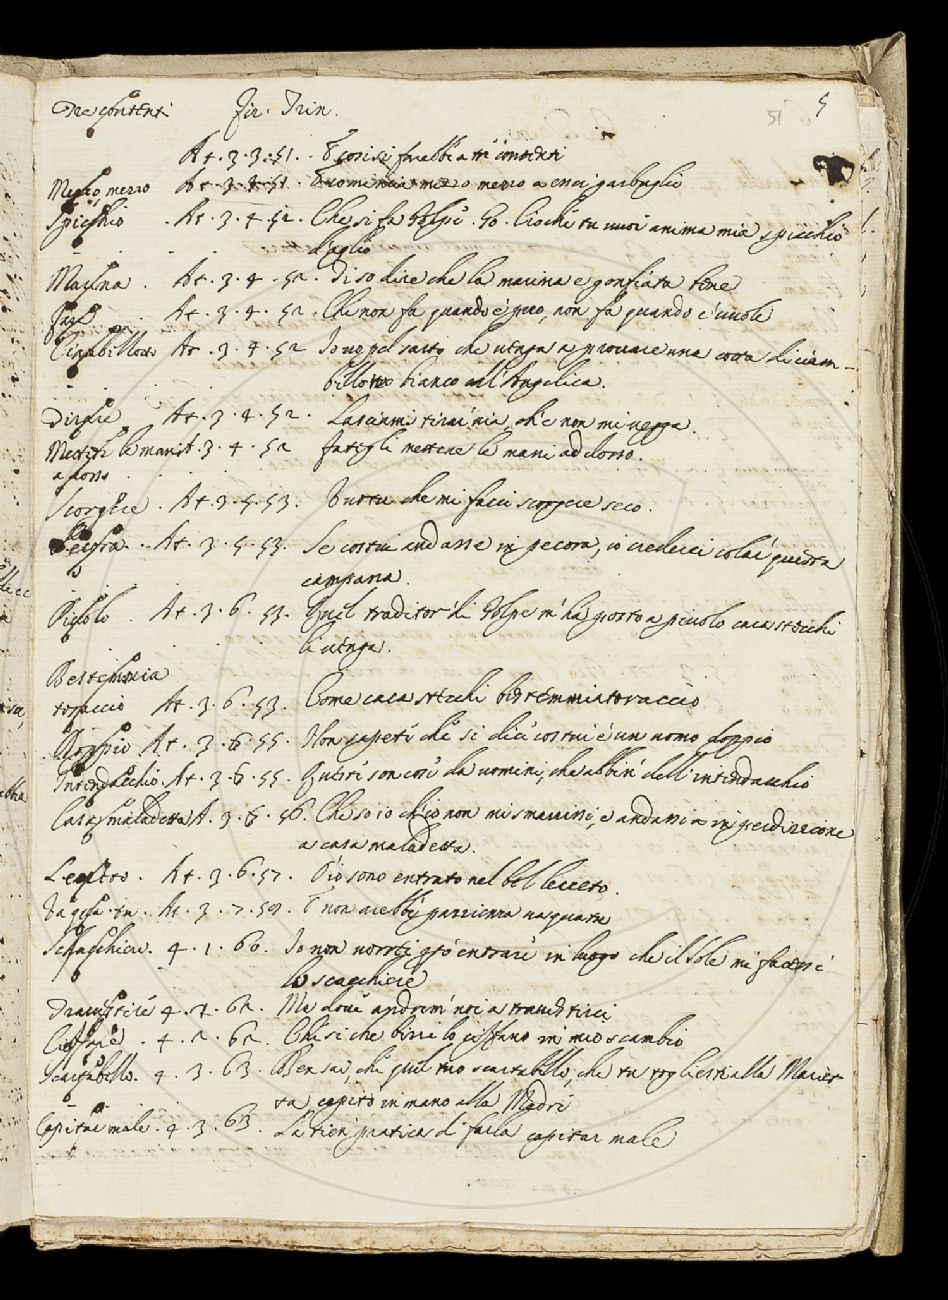 Tre contenti Fir. Trin. 51 5
At. 3. 3. 51. E così si farebbia tre contenti
Mezzo mezzo At. 3. 4. 51. mezzo a cenci garbuglio
Spicchio At. 3. 4. 52. Che si fa Volpe. Vo. Ciochè tu vuoi anima mia spicchio
d'aglio
Marina. At. 3. 4. 52. Di so dire che la marina è gonfiata bene
Fare At. 3. 4. 52. Chi non fa quando è può, non fa quando è vuole
Ciambillotto At. 3. 4. 52 Io vo pel sarto che venga a provare una cotta di ciam-
billotto bianco all'Angelica.
At. 3. 4. 52. Lasciami tirar via, ch'e non mi vegga.
Metter le mani At. 3. 4. 52 fategli mettere le mani addosso.
adosso
Scorgere. At. 3. 5. 53. Vuttu che mi facci scorgere seco.
Pecora. At. 3. 5. 53. Se costui andasse in pecora, io crederei colar questa
campana.
Piuolo. At. 3. 6. 53. Quel traditor di Volpe m'ha posto a piuolo cacastecchi
li venga.
Bestemmia
toraccio At. 3. 6. 53. Come cacastecchi bestemmiatoraccio
Doppio At. 3. 6. 55. Non sapete che si dice costui è un uomo doppio
Intendacchio. At. 3. 6. 55. Questi son cosi da uomini, che abbin dell'intendacchio
Casa maladetta A. 3. 6. 56. Che so io ch'io non mi smarrissi, e andassi in perdizione
a casa maladetta.
Lecceto. At. 3. 6. 57. Dio sono entrato nel bel lecceto.
At. 3. 7. 59. E non arebbe pazzienza
Scacchiere. 4. 1. 60. Io non vorrei già entrare in luogo che il Sole mi facessi
lo scacchiere
4. 2. 62. Ma dove andrem noi a travestirci
Ciuffare. 4. 2. 62. Chi si che birri lo ciuffano in mio scambio
Scartabello. 4. 3. 63. Ben sai, che quel tuo scartabello, che tu togliesti alla Mariet-
ta capitò in mano alla Madre
Capitar male. 4. 3. 63. La tien pratica di farla capitar male